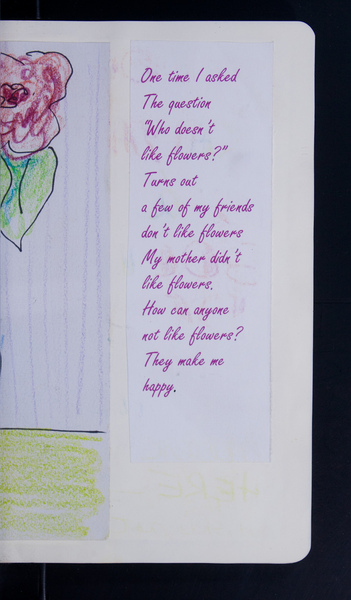 One time I asked
The question
"Who doesn't
like flowers?"
Turns out
a few of my friends
don't like flowers
My mother didn't
like flowers.
How can anyone
not like flowers?
They make me
happy.